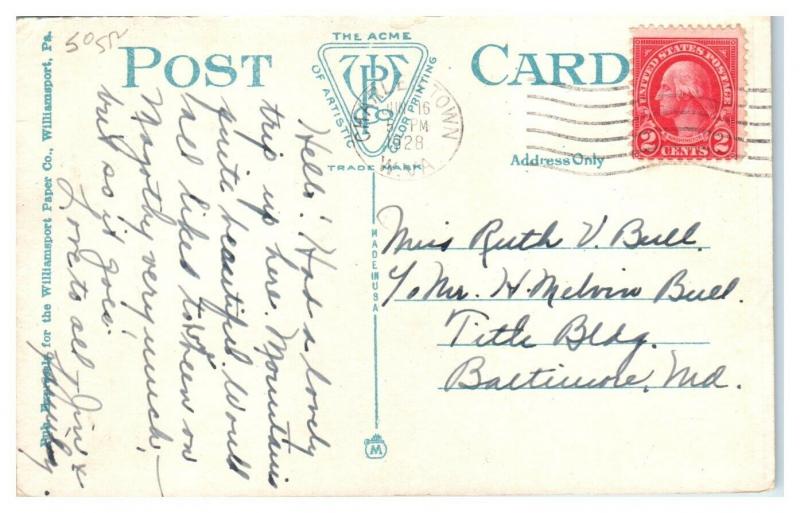 505N
POST CARD
THE ACME
OF ARTISTIC COLOR PRINTING
TRADE MARK
CHARLES TOWN
16
PM
1928
W.VA
UNITED STATES POSTAGE
2 CENTS 2
Address Only
MADE IN USA
M
for the Williamsport Paper Co., Williamsport, Pa.
Hello! Had a lovely
trip up here. Mountains
quite beautiful. Would
have liked to been on
Magothy very much –
but so it goes!
Love to all – Jim &
Miss Ruth V. Bull.
c/o Mr. H. Melvin Bull.
Title Bldg.
Baltimore, Md.